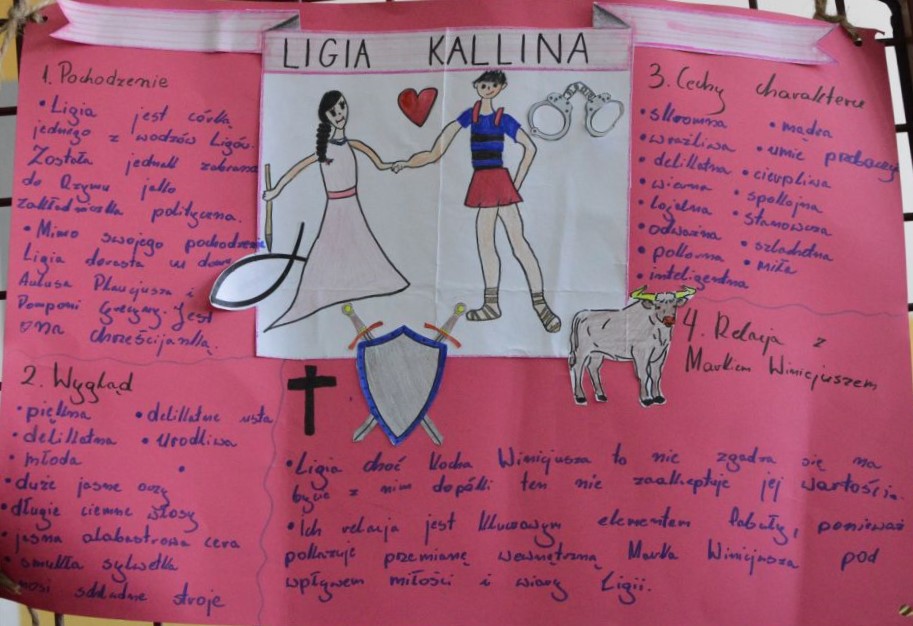 LIGIA KALLINA
1. Pochodzenie
• Ligia jest córką
jednego z wodzów Ligów.
Została jednak zabrana
do Rzymu jako
zakładniczka polityczna.
• Mimo swojego pochodzenia
Ligia dorasta w domu
Aulusa Plaucjusza i
Pomponi Grecyny. Jest
ona chrześcijanką.
2. Wygląd
• piękna
• delikatna
• młoda
• duże jasne oczy
• długie ciemne włosy
• jasna alabastrowa cera
• smukła sylwetka
nosi składne stroje
• delikatne usta
• Urodliwa
•
3. Cechy charakteru
• skromna
• wrażliwa
• delikatna
• wierna
• lojalna
• odważna
• pokorna
• inteligentna
• mądra
• umie przebaczyć
• cierpliwa
• spokojna
• stanowcza
• szlachetna
• miła
4. Relacja z
Markiem Winicjuszem
• Ligia choć kocha Winicjusza to nie zgadza się na
bycie z nim dopóki ten nie zaakceptuje jej wartości.
• Ich relacja jest kluczowym elementem fabuły, ponieważ
pokazuje przemianę wewnętrzną Marka Winicjusza pod
wpływem miłości i wiary Ligii.